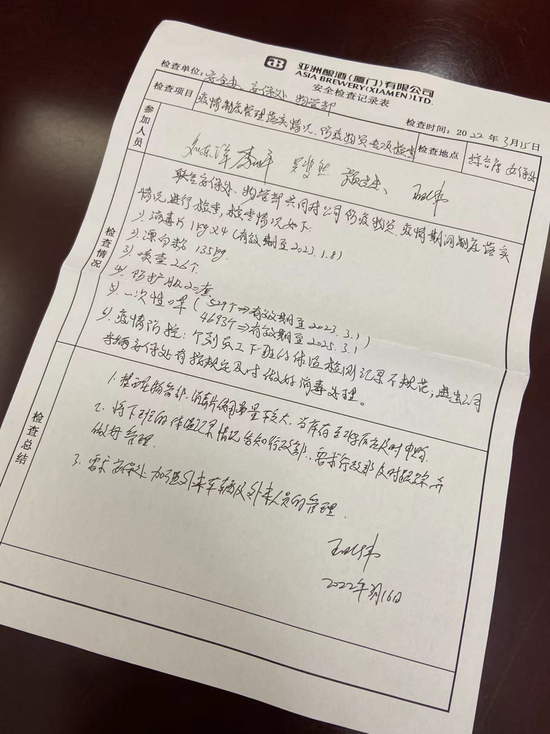 亚洲酿酒(厦门)有限公司
ASIA BREWERY(XIAMEN)LTD.
安全检查记录表
检查单位: 安全办、安保处、物管部
检查时间: 2022年3月15日
检查项目 疫情制度管理落实情况、防疫物资专项检查 检查地点 综合库 安保处
参加人员
检查情况
联合安保处、物管部共同对公司防疫物资、疫情期间制度落实
情况进行检查,检查情况如下:
1) 消毒片 1kg×4 (有效期至2023.1.8)
2) 漂白粉 135kg
3) 喷壶 26个
4) 防护服 20套
5) 一次性口罩 (529个⇒有效期至2023.3.1
4693个⇒有效期至2025.3.1
6) 疫情防控: 个别员工下班的体温检测记录不规范,进出公司
车辆安保处有按规定及时做好消毒处理。
检查总结
1. 整理服务部,消毒片用量较大,当库存至
2. 将下班的体温记录情况告知行政部,要求行政部及时跟踪并
做好管理.
3. 需求安保处加强外来车辆及外来人员的管理.
2022年3月16日